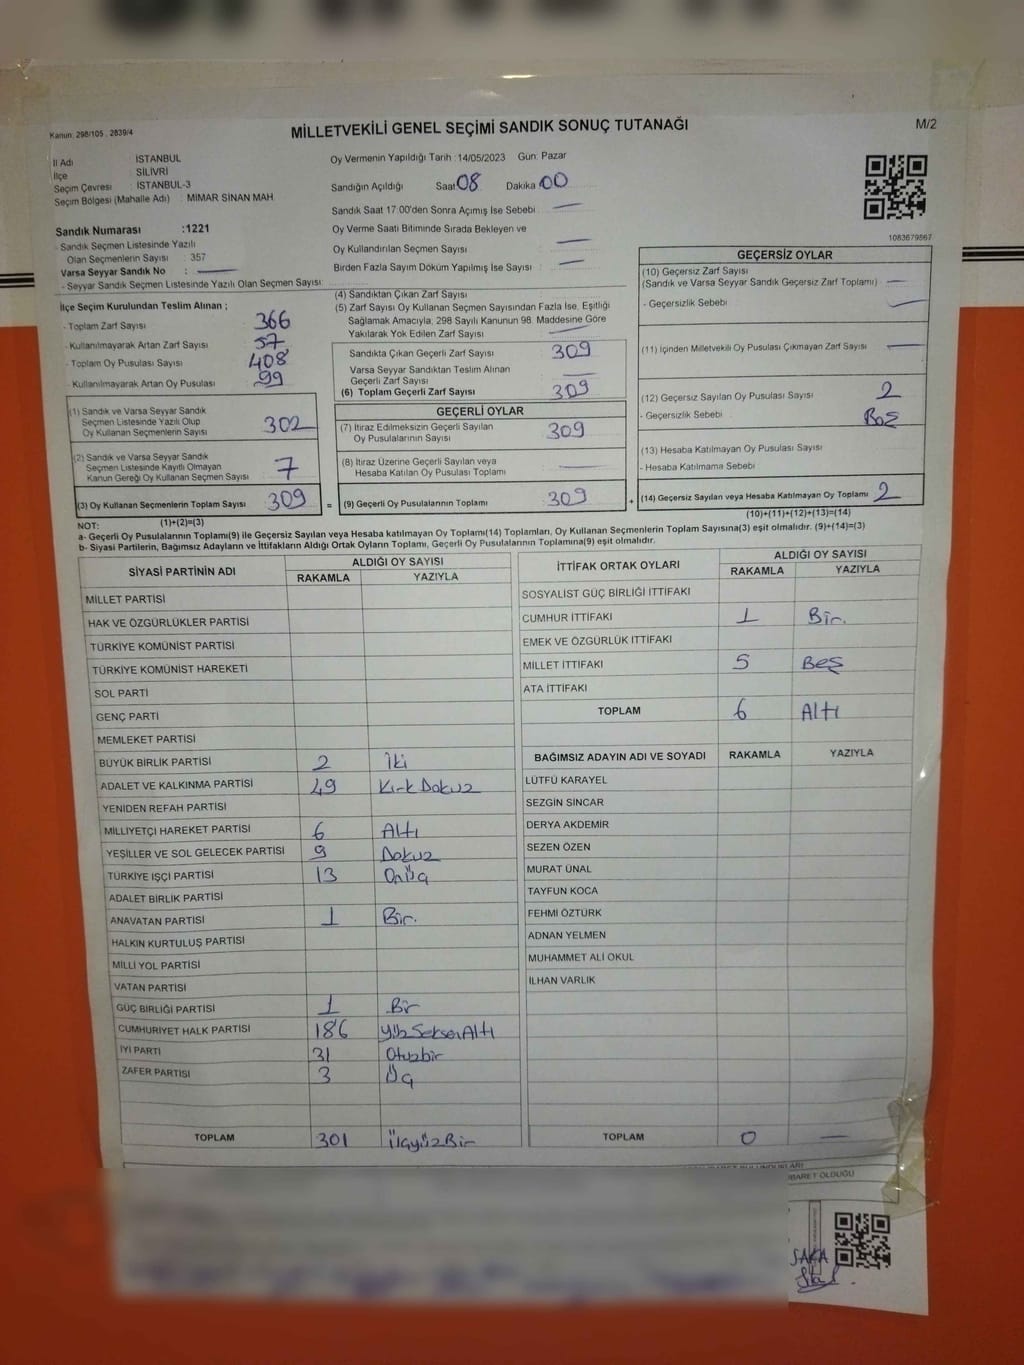 Kanun: 298/105 , 2839/4
MİLLETVEKİLİ GENEL SEÇİMİ SANDIK SONUÇ TUTANAĞI
M/2
İl Adı : İSTANBUL
İlçe : SİLİVRİ
Seçim Çevresi : İSTANBUL-3
Seçim Bölgesi (Mahalle Adı) : MİMAR SİNAN MAH
Oy Vermenin Yapıldığı Tarih :14/05/2023 Gün: Pazar
Sandığın Açıldığı Saat 08 Dakika 00
Sandık Saat 17:00'den Sonra Açımış İse Sebebi
Oy Verme Saati Bitiminde Sırada Bekleyen ve
Oy Kullandırılan Seçmen Sayısı
Birden Fazla Sayım Döküm Yapılmış İse Sayısı
1083679867
Sandık Numarası :1221
- Sandık Seçmen Listesinde Yazılı
Olan Seçmenlerin Sayısı : 357
Varsa Seyyar Sandık No :
- Seyyar Sandık Seçmen Listesinde Yazılı Olan Seçmen Sayısı:
İlçe Seçim Kurulundan Teslim Alınan ;
- Toplam Zarf Sayısı 366
- Kullanılmayarak Artan Zarf Sayısı 57
- Toplam Oy Pusulası Sayısı 408
- Kullanılmayarak Artan Oy Pusulası 99
(1) Sandık ve Varsa Seyyar Sandık
Seçmen Listesinde Yazılı Olup
Oy Kullanan Seçmenlerin Sayısı 302
(2) Sandık ve Varsa Seyyar Sandık
Seçmen Listesinde Kayıtlı Olmayan
Kanun Gereği Oy Kullanan Seçmen Sayısı 7
(3) Oy Kullanan Seçmenlerin Toplam Sayısı 309 =
(1)+(2)=(3)
(4) Sandıktan Çıkan Zarf Sayısı
(5) Zarf Sayısı Oy Kullanan Seçmen Sayısından Fazla İse, Eşitliği
Sağlamak Amacıyla; 298 Sayılı Kanunun 98. Maddesine Göre
Yakılarak Yok Edilen Zarf Sayısı
Sandıkta Çıkan Geçerli Zarf Sayısı 309
Varsa Seyyar Sandıktan Teslim Alınan
Geçerli Zarf Sayısı
(6) Toplam Geçerli Zarf Sayısı 309
GEÇERLİ OYLAR
(7) İtiraz Edilmeksizin Geçerli Sayılan
Oy Pusulalarının Sayısı 309
(8) İtiraz Üzerine Geçerli Sayılan veya
Hesaba Katılan Oy Pusulası Toplamı
(9) Geçerli Oy Pusulalarının Toplamı 309 +
GEÇERSİZ OYLAR
(10) Geçersiz Zarf Sayısı
(Sandık ve Varsa Seyyar Sandık Geçersiz Zarf Toplamı)
- Geçersizlik Sebebi
(11) İçinden Milletvekili Oy Pusulası Çıkmayan Zarf Sayısı
(12) Geçersiz Sayılan Oy Pusulası Sayısı 2
- Geçersizlik Sebebi Boş
(13) Hesaba Katılmayan Oy Pusulası Sayısı
- Hesaba Katılmama Sebebi
(14) Geçersiz Sayılan veya Hesaba Katılmayan Oy Toplamı 2
(10)+(11)+(12)+(13)=(14)
NOT:
a- Geçerli Oy Pusulalarının Toplamı(9) ile Geçersiz Sayılan veya Hesaba katılmayan Oy Toplamı(14) Toplamları, Oy Kullanan Seçmenlerin Toplam Sayısına(3) eşit olmalıdır. (9)+(14)=(3)
b- Siyasi Partilerin, Bağımsız Adayların ve İttifakların Aldığı Ortak Oyların Toplamı, Geçerli Oy Pusulalarının Toplamına(9) eşit olmalıdır.
SİYASİ PARTİNİN ADI ALDIĞI OY SAYISI
RAKAMLA YAZIYLA
MİLLET PARTİSİ
HAK VE ÖZGÜRLÜKLER PARTİSİ
TÜRKİYE KOMÜNİST PARTİSİ
TÜRKİYE KOMÜNİST HAREKETİ
SOL PARTİ
GENÇ PARTİ
MEMLEKET PARTİSİ
BÜYÜK BİRLİK PARTİSİ 2 İki
ADALET VE KALKINMA PARTİSİ 49 Kırk Dokuz
YENİDEN REFAH PARTİSİ
MİLLİYETÇİ HAREKET PARTİSİ 6 Altı
YEŞİLLER VE SOL GELECEK PARTİSİ 9 Dokuz
TÜRKİYE İŞÇİ PARTİSİ 13 Onüç
ADALET BİRLİK PARTİSİ
ANAVATAN PARTİSİ 1 Bir.
HALKIN KURTULUŞ PARTİSİ
MİLLİ YOL PARTİSİ
VATAN PARTİSİ
GÜÇ BİRLİĞİ PARTİSİ 1 Bir
CUMHURİYET HALK PARTİSİ 186 Yüz Seksen Altı
İYİ PARTİ 31 Otuzbir
ZAFER PARTİSİ 3 Üç
TOPLAM 301 Üçyüz Bir
İTTİFAK ORTAK OYLARI ALDIĞI OY SAYISI
RAKAMLA YAZIYLA
SOSYALİST GÜÇ BİRLİĞİ İTTİFAKI
CUMHUR İTTİFAKI 1 Bir.
EMEK VE ÖZGÜRLÜK İTTİFAKI
MİLLET İTTİFAKI 5 Beş
ATA İTTİFAKI
TOPLAM 6 Altı
BAĞIMSIZ ADAYIN ADI VE SOYADI RAKAMLA YAZIYLA
LÜTFÜ KARAYEL
SEZGİN SİNCAR
DERYA AKDEMİR
SEZEN ÖZEN
MURAT ÜNAL
TAYFUN KOCA
FEHMİ ÖZTÜRK
ADNAN YELMEN
MUHAMMET ALİ OKUL
İLHAN VARLIK
TOPLAM 0
İBARET OLDUĞU
SAKA